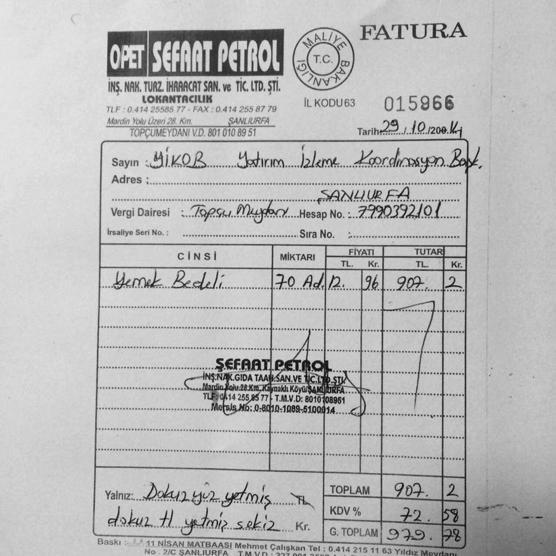 OPET ŞEFAAT PETROL
İNŞ. NAK. TURZ. İHARACAT SAN. ve TİC. LTD. ŞTİ.
LOKANTACILIK
TLF : 0.414 25585 77 - FAX : 0.414 255 87 79
Mardin Yolu Üzeri 28. Km. ŞANLIURFA
TOPÇUMEYDANI V.D. 801 010 89 51
MALİYE BAKANLIĞI T.C.
İL KODU 63
FATURA
015966
Tarih: 29/10/2014
Sayın : YİKOB Yatırım İzleme Koordinasyon Başk.
Adres :
ŞANLIURFA
Vergi Dairesi : Topçu Meydanı Hesap No. : 7990392101
İrsaliye Seri No. : Sıra No. :
CİNSİ MİKTARI FİYATI TUTARI
TL. Kr. TL. Kr.
Yemek Bedeli 70 Ad. 12. 96 907. 2
ŞEFAAT PETROL
İNŞ.NAK.GIDA TAAH.SAN.VE TİC.LTD.ŞTİ.
Mardin Yolu 28.Km. Kaynaklı Köyü/ŞANLIURFA
TLF: 0414 255 85 77 - T.M.V.D: 8010108951
Mersis No: 0-8010-1089-5100014
Yalnız: Dokuz yüz yetmiş TL
dokuz tl yetmiş sekiz Kr.
TOPLAM 907. 2
KDV % 72. 58
G. TOPLAM 979. 78
11 NİSAN MATBAASI Mehmet Çalışkan Tel : 0.414 215 11 63 Yıldız Meydanı
No : 2/C ŞANLIURFA